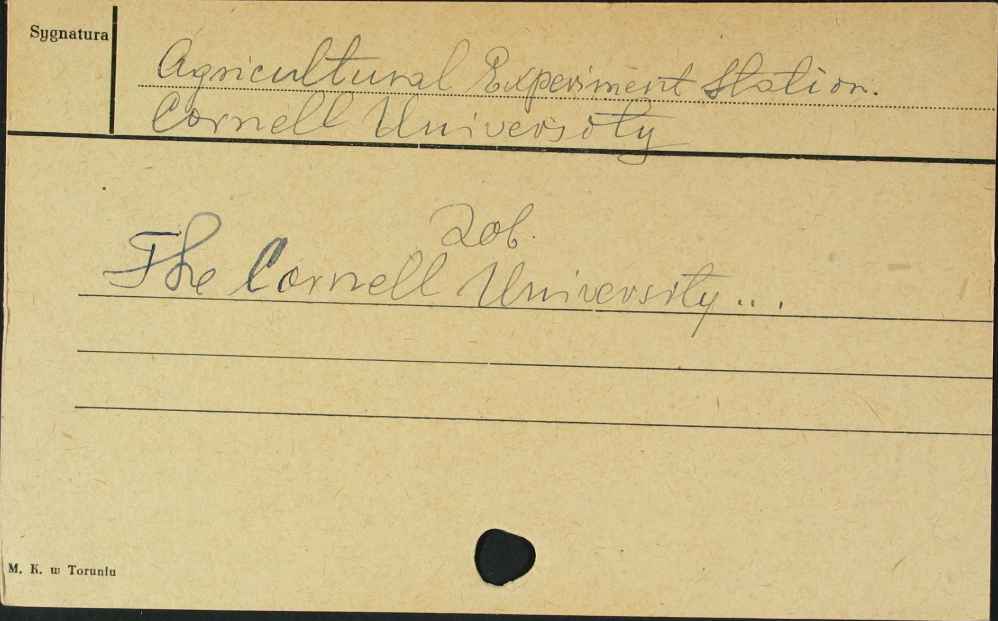 Sygnatura
Agricultural Experiment Station.
Cornell University
Zob.
The Cornell University...
M. K. w Toruniu